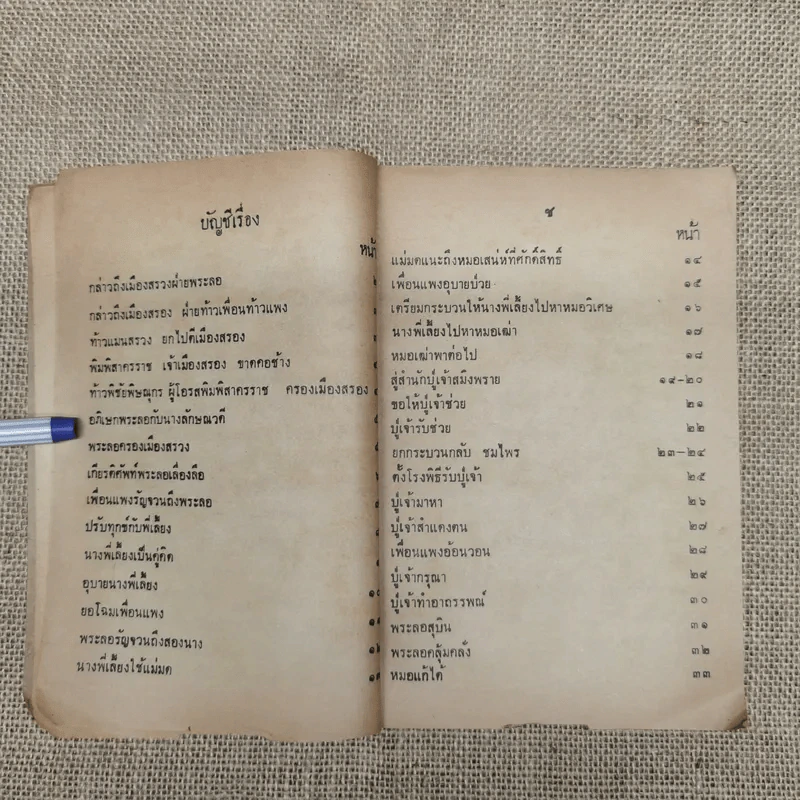 บัญชีเรื่อง
หน้า
กล่าวถึงเมืองสรวงฝ่ายพระลอ
กล่าวถึงเมืองสรอง ฝ่ายท้าวเพื่อนท้าวแพง
ท้าวแมนสรวง ยกไปตีเมืองสรอง
พิมพิสาครราช เจ้าเมืองสรอง ขาดคอช้าง
ท้าวพิชัยพิษณุกร ผู้โอรสพิมพิสาครราช ครองเมืองสรอง
อภิเษกพระลอกับนางลักษณวดี
พระลอครองเมืองสรวง
เกียรติศัพท์พระลอเลื่องลือ
เพื่อนแพงรัญจวนถึงพระลอ
ปรับทุกข์กับพี่เลี้ยง
นางพี่เลี้ยงเป็นคู่คิด
อุบายนางพี่เลี้ยง
ยอโฉมเพื่อนแพง
พระลอรัญจวนถึงสองนาง
นางพี่เลี้ยงใช้แม่มด
ช
หน้า
แม่มดแนะถึงหมอเสน่ห์ที่ศักดิ์สิทธิ์ ๑๔
เพื่อนแพงอุบายป่วย ๑๕
เตรียมกระบวนให้นางพี่เลี้ยงไปหาหมอวิเศษ ๑๖
นางพี่เลี้ยงไปหาหมอเฒ่า ๑๗
หมอเฒ่าพาต่อไป ๑๘
สู่สำนักปู่เจ้าสมิงพราย ๑๙–๒๐
ขอให้ปู่เจ้าช่วย ๒๑
ปู่เจ้ารับช่วย ๒๒
ยกกระบวนกลับ ชมไพร ๒๓–๒๔
ตั้งโรงพิธีรับปู่เจ้า ๒๕
ปู่เจ้ามาหา ๒๖
ปู่เจ้าสำแดงตน ๒๗
เพื่อนแพงอ้อนวอน ๒๘
ปู่เจ้ากรุณา ๒๙
ปู่เจ้าทำอาถรรพณ์ ๓๐
พระลอสุบิน ๓๑
พระลอคลุ้มคลั่ง ๓๒
หมอแก้ได้ ๓๓